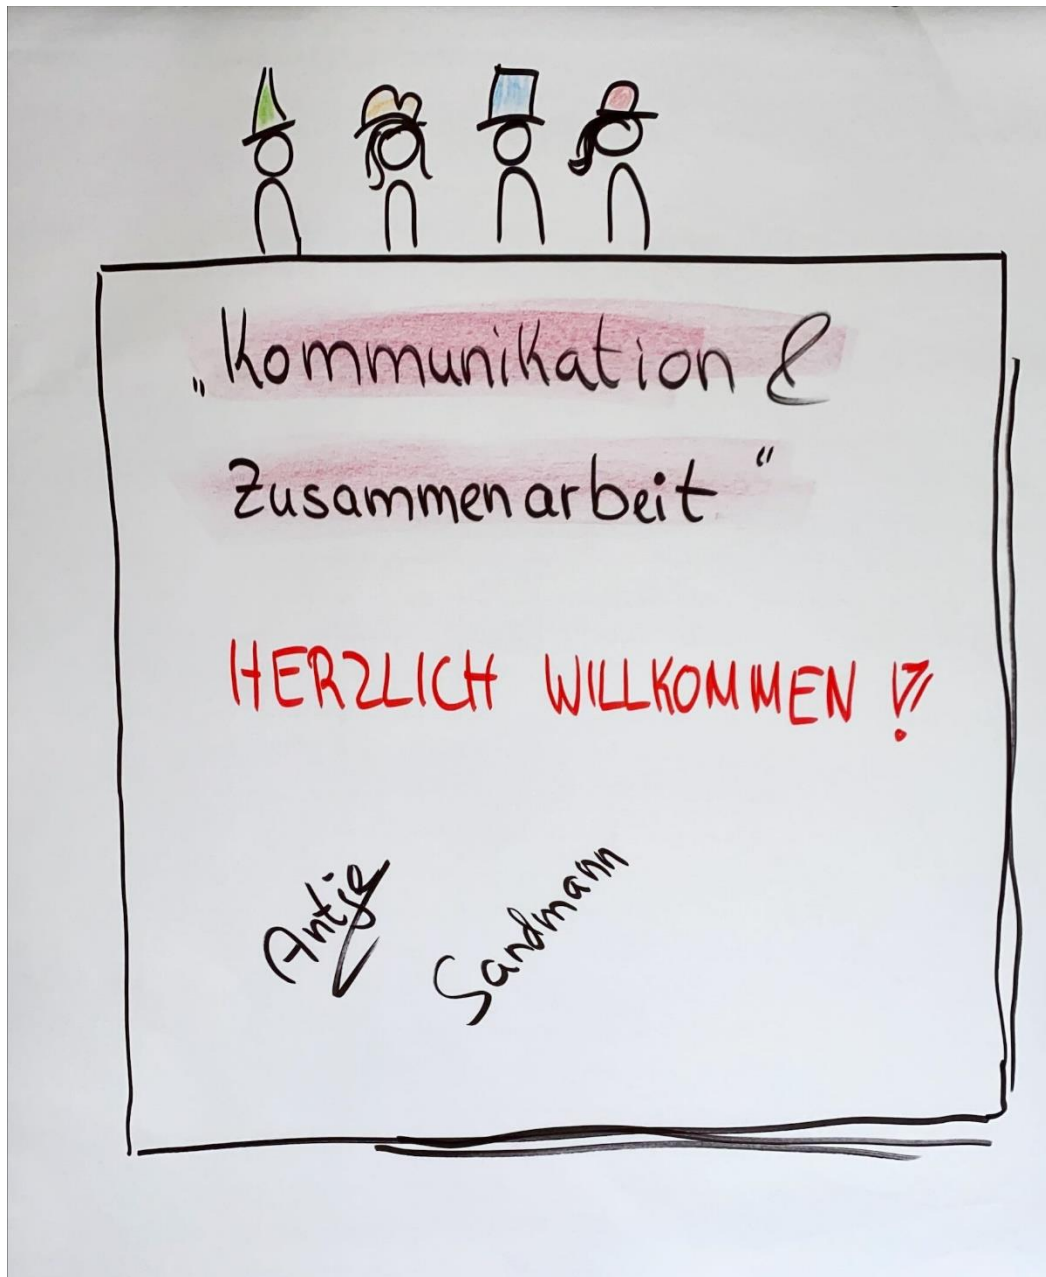 „Kommunikation &
Zusammenarbeit“
HERZLICH WILLKOMMEN !
Antje Sandmann